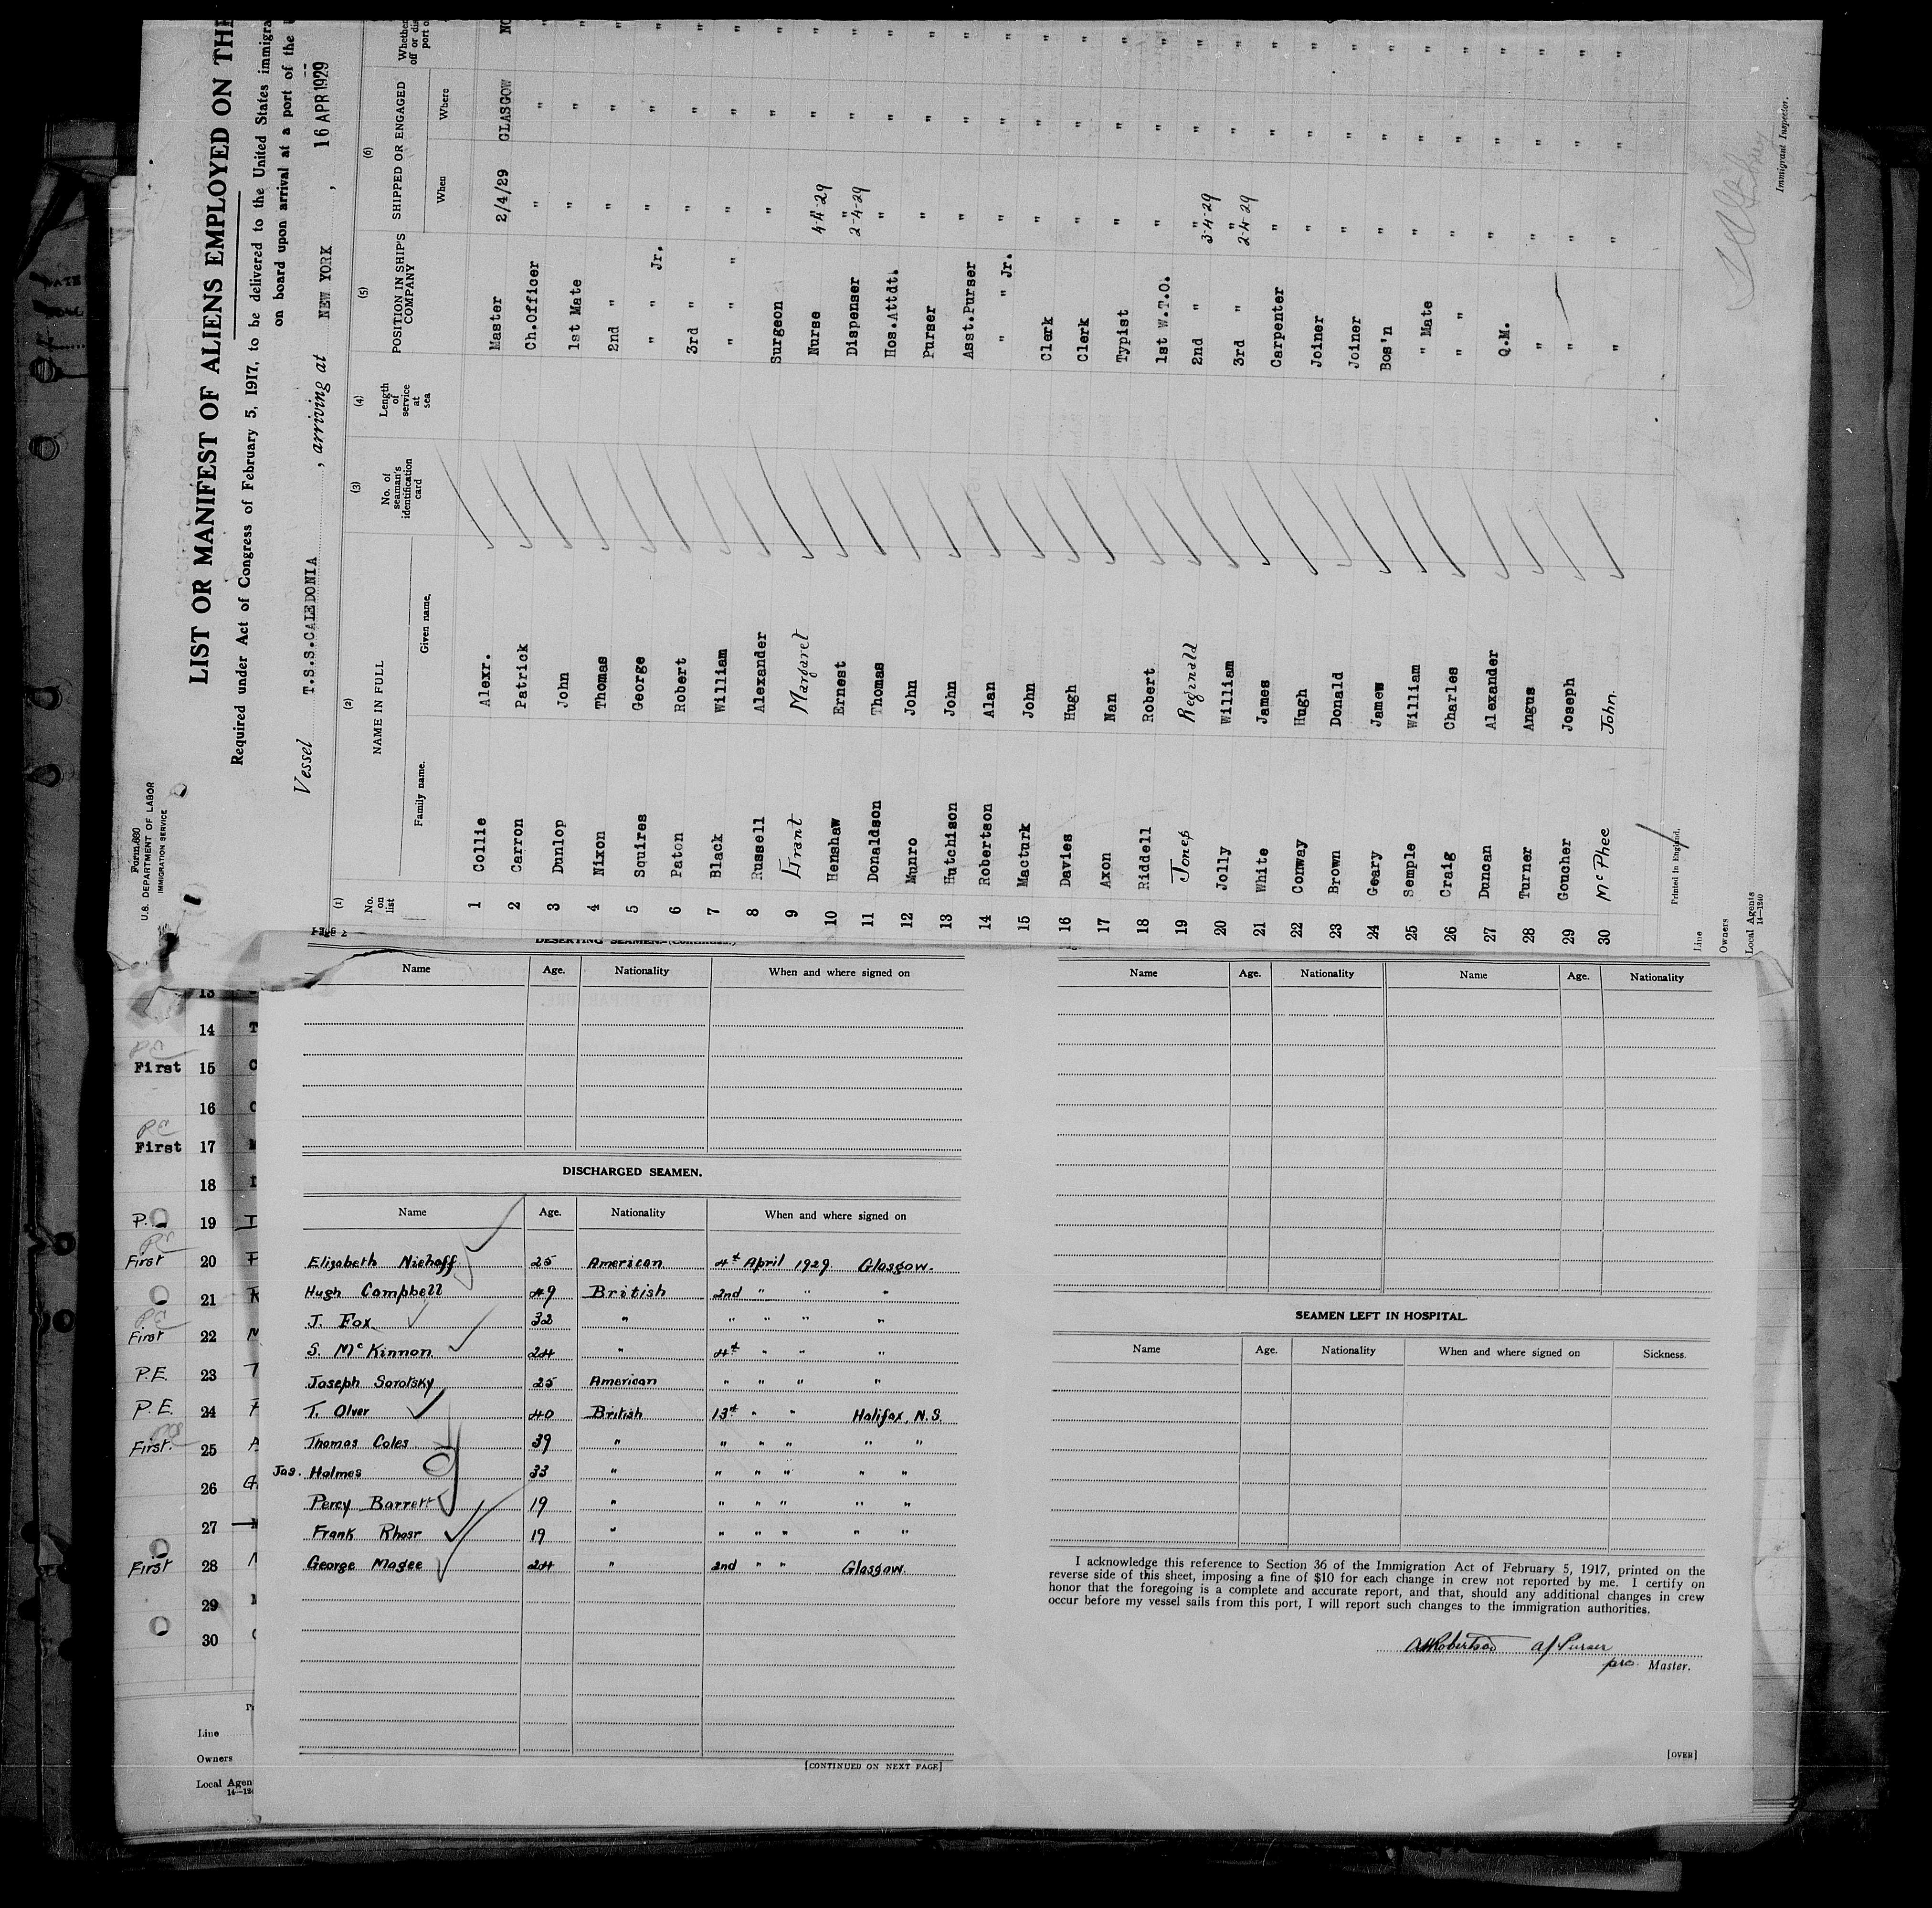 Form 680
U.S. DEPARTMENT OF LABOR
IMMIGRATION SERVICE
LIST OR MANIFEST OF ALIENS EMPLOYED ON THE
Required under Act of Congress of February 5, 1917, to be delivered to the United States immigra
on board upon arrival at a port of the
Vessel T.S.S.CALEDONIA , arriving at NEW YORK , 16 APR 1929
(1) (2) (3) (4) (5) (6)
No. on list NAME IN FULL No. of seaman's identification card Length of service at sea POSITION IN SHIP'S COMPANY SHIPPED OR ENGAGED Whether
Family name. Given name. When Where
1 Collie Alexr. Master 2/4/29 GLASGOW
2 Carron Patrick Ch.Officer " " "
3 Dunlop John 1st Mate " " "
4 Nixon Thomas 2nd " " " "
5 Squires George " " Jr. " " "
6 Paton Robert 3rd " " " "
7 Black William " " " " " "
8 Russell Alexander Surgeon " " "
9 Grant Margaret Nurse 4-4-29 " "
10 Henshaw Ernest Dispenser 2-4-29 " "
11 Donaldson Thomas Hos.Attdt. " " "
12 Munro John Purser " " "
13 Hutchison John Asst.Purser " " "
14 Robertson Alan " " Jr. " " "
15 Macturk John Clerk " " "
16 Davies Hugh Clerk " " "
17 Axon Nan Typist " " "
18 Riddell Robert 1st W.T.O. " " "
19 Jones Reginald 2nd " 3-4-29 " "
20 Jolly William 3rd " 2-4-29 " "
21 White James Carpenter " " "
22 Conway Hugh Joiner " " "
23 Brown Donald Joiner " " "
24 Geary James Bos'n " " "
25 Semple William " Mate " " "
26 Craig Charles " " " " "
27 Duncan Alexander Q.M. " " "
28 Turner Angus " " " "
29 Goucher Joseph " " " "
30 McPhee John. " " " "
Printed in England.
Line
Owners
Local Agents
14-1240
Immigrant Inspector.
DESERTING SEAMEN. (Continued.)
Name Age. Nationality When and where signed on
DISCHARGED SEAMEN.
Name Age. Nationality When and where signed on
Elizabeth Niehoff 25 American 4th April 1929 Glasgow.
Hugh Campbell 49 British 2nd " " "
J. Fox 32 " " " " "
S. McKinnon 24 " 4th " " "
Joseph Sorotsky 25 American " " " "
T. Olver 40 British 13th " " Halifax, N.S.
Thomas Coles 39 " " " " " "
Jas. Holmes 33 " " " " " "
Percy Barrett 19 " " " " " "
Frank 19 " " " " " "
George Magee 24 " 2nd " " Glasgow
[CONTINUED ON NEXT PAGE]
Name Age. Nationality Name Age. Nationality
SEAMEN LEFT IN HOSPITAL.
Name Age. Nationality When and where signed on Sickness.
I acknowledge this reference to Section 36 of the Immigration Act of February 5, 1917, printed on the
reverse side of this sheet, imposing a fine of $10 for each change in crew not reported by me. I certify on
honor that the foregoing is a complete and accurate report, and that, should any additional changes in crew
occur before my vessel sails from this port, I will report such changes to the immigration authorities.
Robertson A/Purser
pro Master.
[OVER]
13
14
First 15
16
First 17
18
P. 19
First 20
21
First 22
P.E. 23
P.E. 24
First. 25
26
27
First 28
29
30
Line
Owners
Local Agen